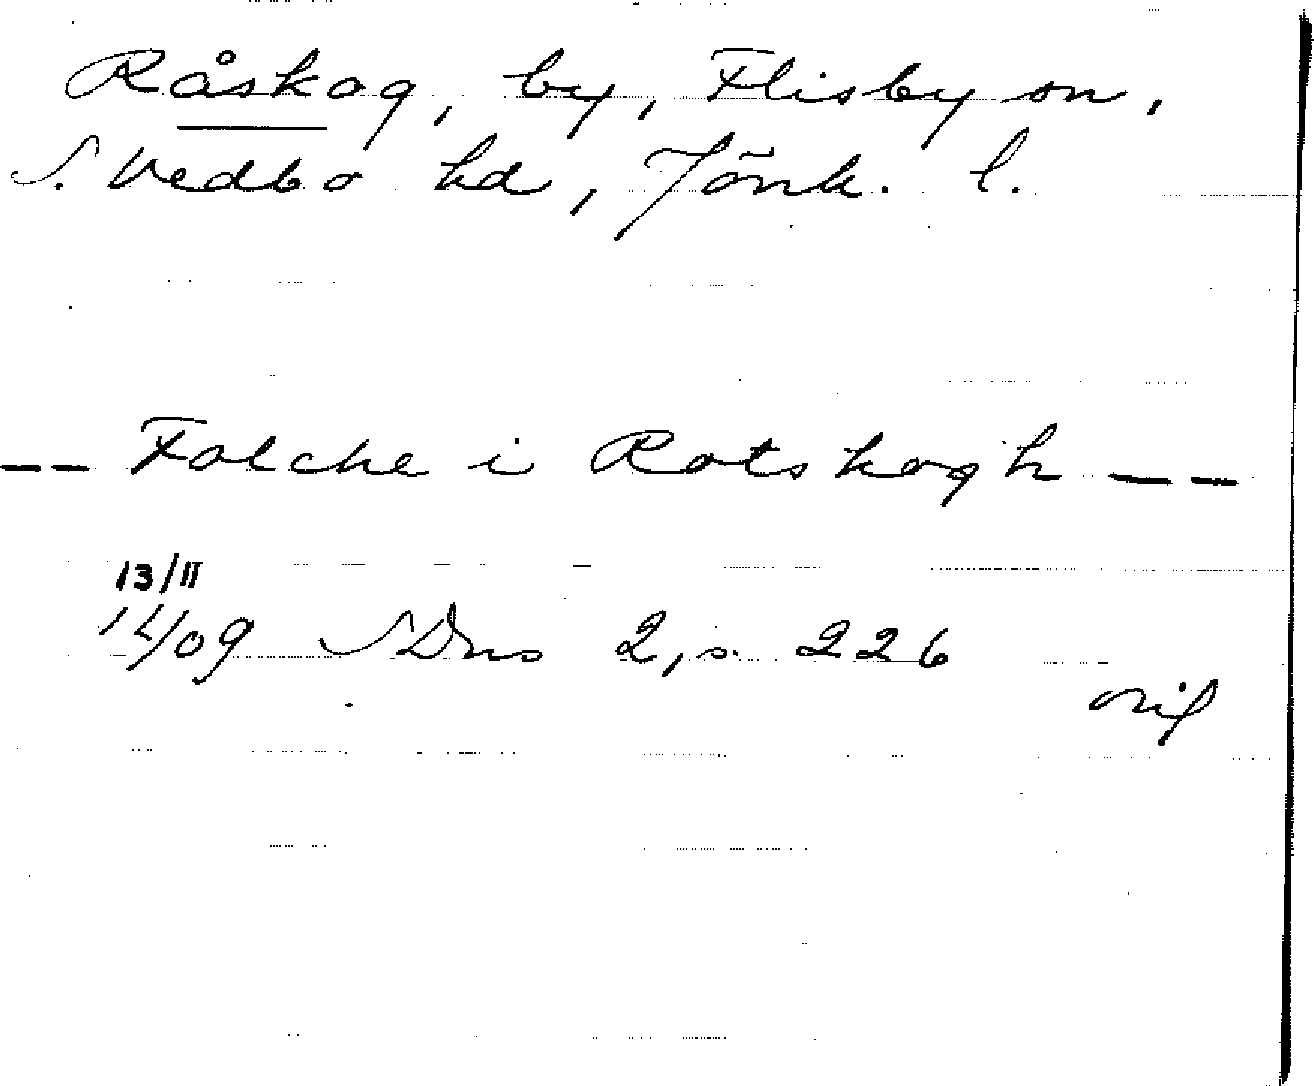 Råskog, by, Flisby sn,
S. Vedbo hd, Jönk. l.
-- Folche i Rotskogh --
13/11
1409 SDns 2, s. 226
orig